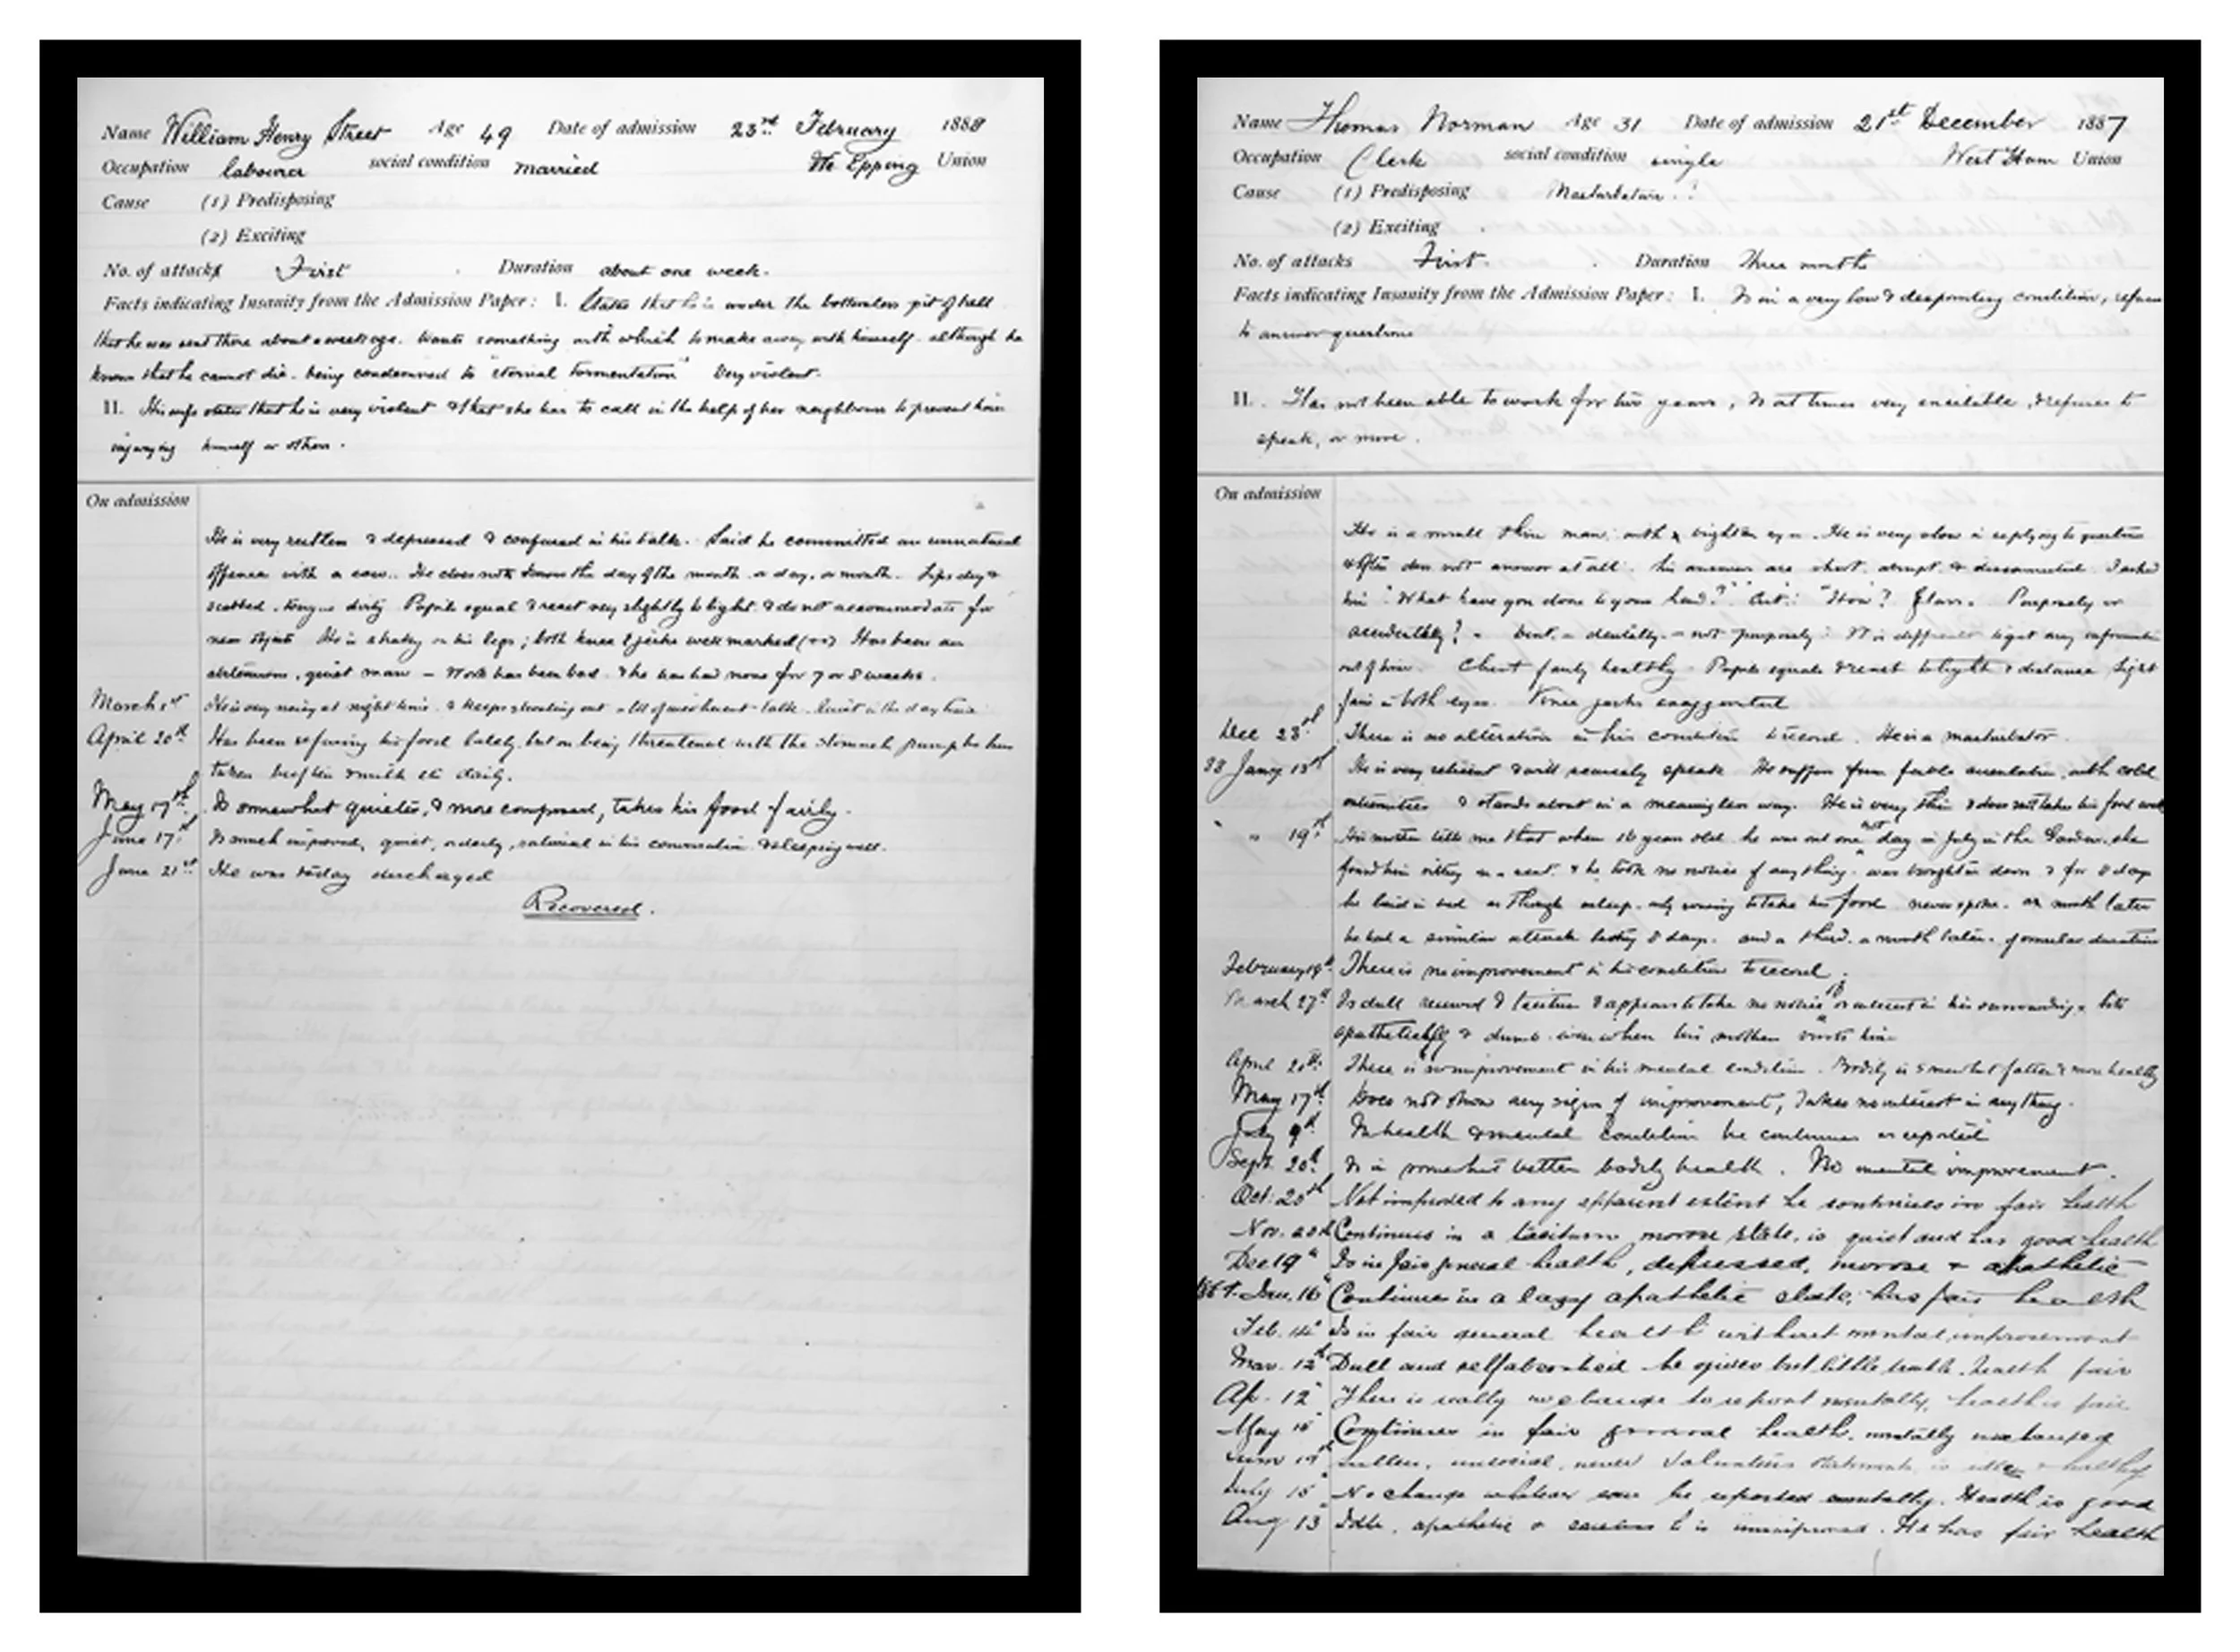 Name William Henry Street Age 49 Date of admission 23rd February 1888
Occupation labourer social condition married The Epping Union
Cause (1) Predisposing
(2) Exciting
No. of attacks First . Duration about one week.
Facts indicating Insanity from the Admission Paper: I. States that he is under the bottomless pit of hell
that he was sent there about a week ago. Wants something with which to make away with himself. although he
knows that he cannot die. being condemned to "eternal tormentation" Very violent.
II. His wife states that he is very violent & that she has to call in the help of her neighbours to prevent him
injuying himself or others.
On admission
He is very restless & depressed & confused in his talk. Said he committed an unnatural
offence with a cow. He does not know the day of the month or day, or month. Lips dry &
scabbed. tongue dirty Pupils equal & react very slightly to light & do not accommodate for
near objects He is shaky on his legs; both knee jerks well marked (++) Has been an
abstemious, quiet man – Work has been bad & he has had none for 7 or 8 weeks.
March 1st He is very noisy at night time. & keeps shouting out a lot of talk. Quiet in the day time
April 20th Has been refusing his food lately, but on being threatened with the stomach pump he has
taken beef tea & milk etc daily.
May 17th. Is somewhat quieter, & more composed, takes his food fairly.
June 17th Is much improved, quiet, orderly, rational in his conversation & sleeping well.
June 21st He was today discharged
Recovered.
Name Thomas Norman Age 31 Date of admission 21st December 1887
Occupation Clerk social condition single West Ham Union
Cause (1) Predisposing Masturbation ?
(2) Exciting
No. of attacks First . Duration Three months
Facts indicating Insanity from the Admission Paper: I. Is in a very low & desponding condition, refuses
to answer questions
II. Has not been able to work for two years, Is at times very excitable, & refuses to
speak, or move.
On admission
He is a small thin man with eyes. He is very slow in replying to questions
& often does not answer at all. his answers are short, abrupt & disconnected. I asked
him "What have you done to your hand?" "Cut." "How"? Glass. Purposely or
accidentally? – dentally – not purposely. It is difficult to get any information
out of him. Chest fairly healthy Pupils equal & react to light & distance Sight
fair in both eyes. Knee jerks exaggerated
Dec 23rd There is no alteration in his condition to record. He is a masturbator.
88 Jany 13th He is very reticent & will scarcely speak He suffers from feeble circulation, with cold
extremities & stands about in a meaningless way. He is very thin & does not take his food well
" 19th His mother tells me that when 16 years old. he was out one hot day in July in the Garden. she
found him sitting on a seat. & he took no notice of anything. was brought in down & for 8 days
he laid in bed as though asleep. only rousing to take his food never spoke. a month later
he had a similar attack lasting 8 days. and a third. a month later. of similar duration
February 19th There is no improvement in his condition to record.
March 27th Is dull reserved & taciturn & appears to take no notice of or interest in his surroundings. sits
apathetically & dumb even when his mother visits him
April 20th There is no improvement in his mental condition. Bodily is somewhat fatter & more healthy
May 17th. Does not show any signs of improvement, Takes no interest in anything.
July 9th In health & mental condition he continues as reported
Sept. 20th Is in somewhat better bodily health. No mental improvement.
Oct. 20th Not improved to any apparent extent he continues in fair health
Nov. 20th Continues in a taciturn morose state, is quiet and has good health
Dec 19th Is in fair general health, depressed, morose & apathetic
Jan. 16 Continues in a lazy apathetic state, has fair health
Feb. 14 Is in fair general health without mental improvement
Mar. 12th Dull and selfabsorbed he gives but little trouble. health fair
Ap. 12 There is really no change to report mentally, health is fair
May 15 Continues in fair general health. mentally unchanged
June Sullen, unsocial, never statements, is idle & healthy
July 15 No change whatever can be reported mentally. Health is good
Aug 13 Idle, apathetic & careless he is unimproved. He has fair health